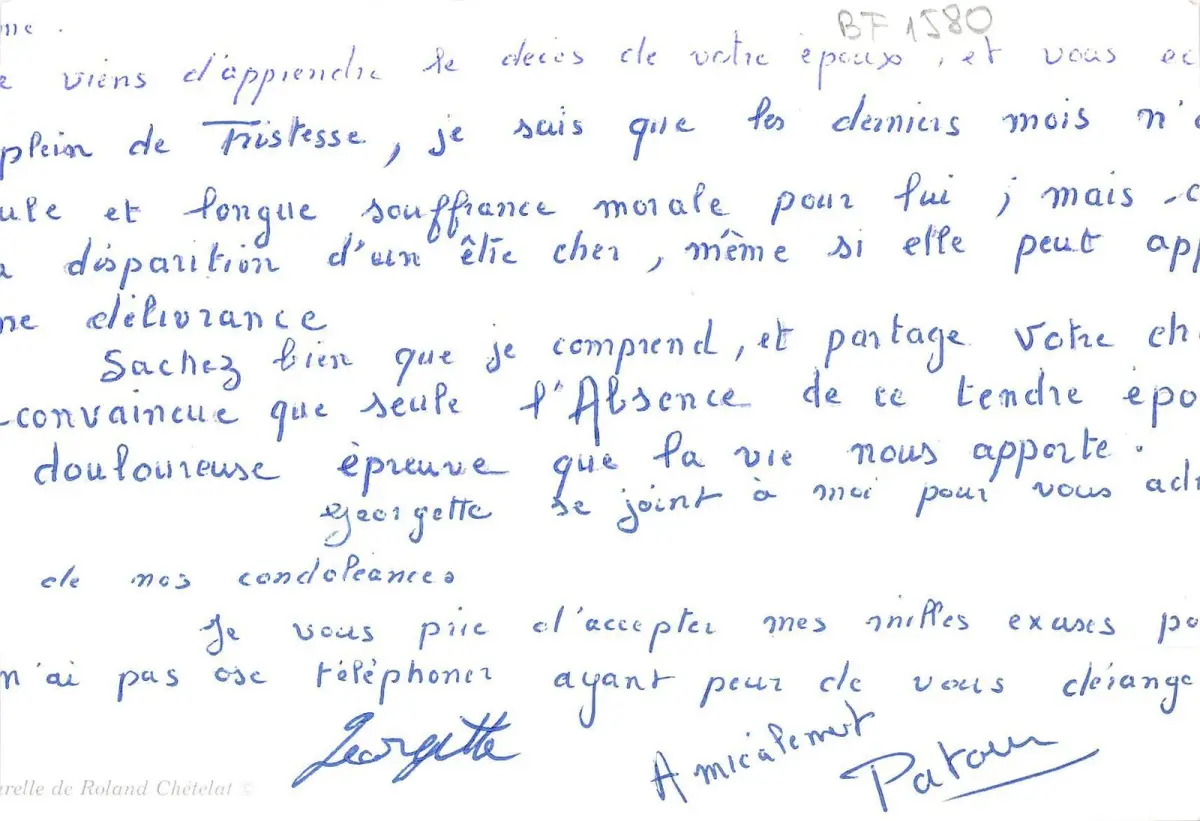 BF 1580
me.
e viens d'apprendre le deces de votre époux, et vous ec
plein de Tristesse, je sais que les derniers mois n'
ule et longue souffrance morale pour lui ; mais c
a disparition d'un être cher, même si elle peut app
ne délivrance
Sachez bien que je comprend, et partage votre ch
convaincue que seule l'Absence de ce tendre épo
douloureuse épreuve que la vie nous apporte.
Georgette se joint à moi pour vous adr
de nos condoléances
Je vous prie d'accepter mes milles excuses po
n'ai pas osé téléphoner ayant peur de vous dérange
Georgette
Amicalement
arelle de Roland Chételat ©